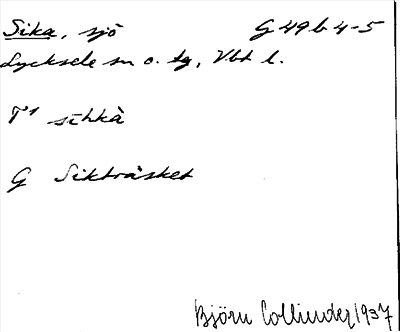 Sika, sjö G 49 b 4-5
Lycksele sn o. tg, Vbt l.
T¹ sihkà
G Sikträsket
Björn Collinder 1937